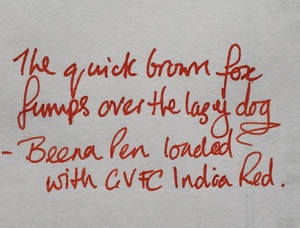 The quick brown fox
jumps over the lazy dog
- Beena Pen loaded
with GVFC India Red.